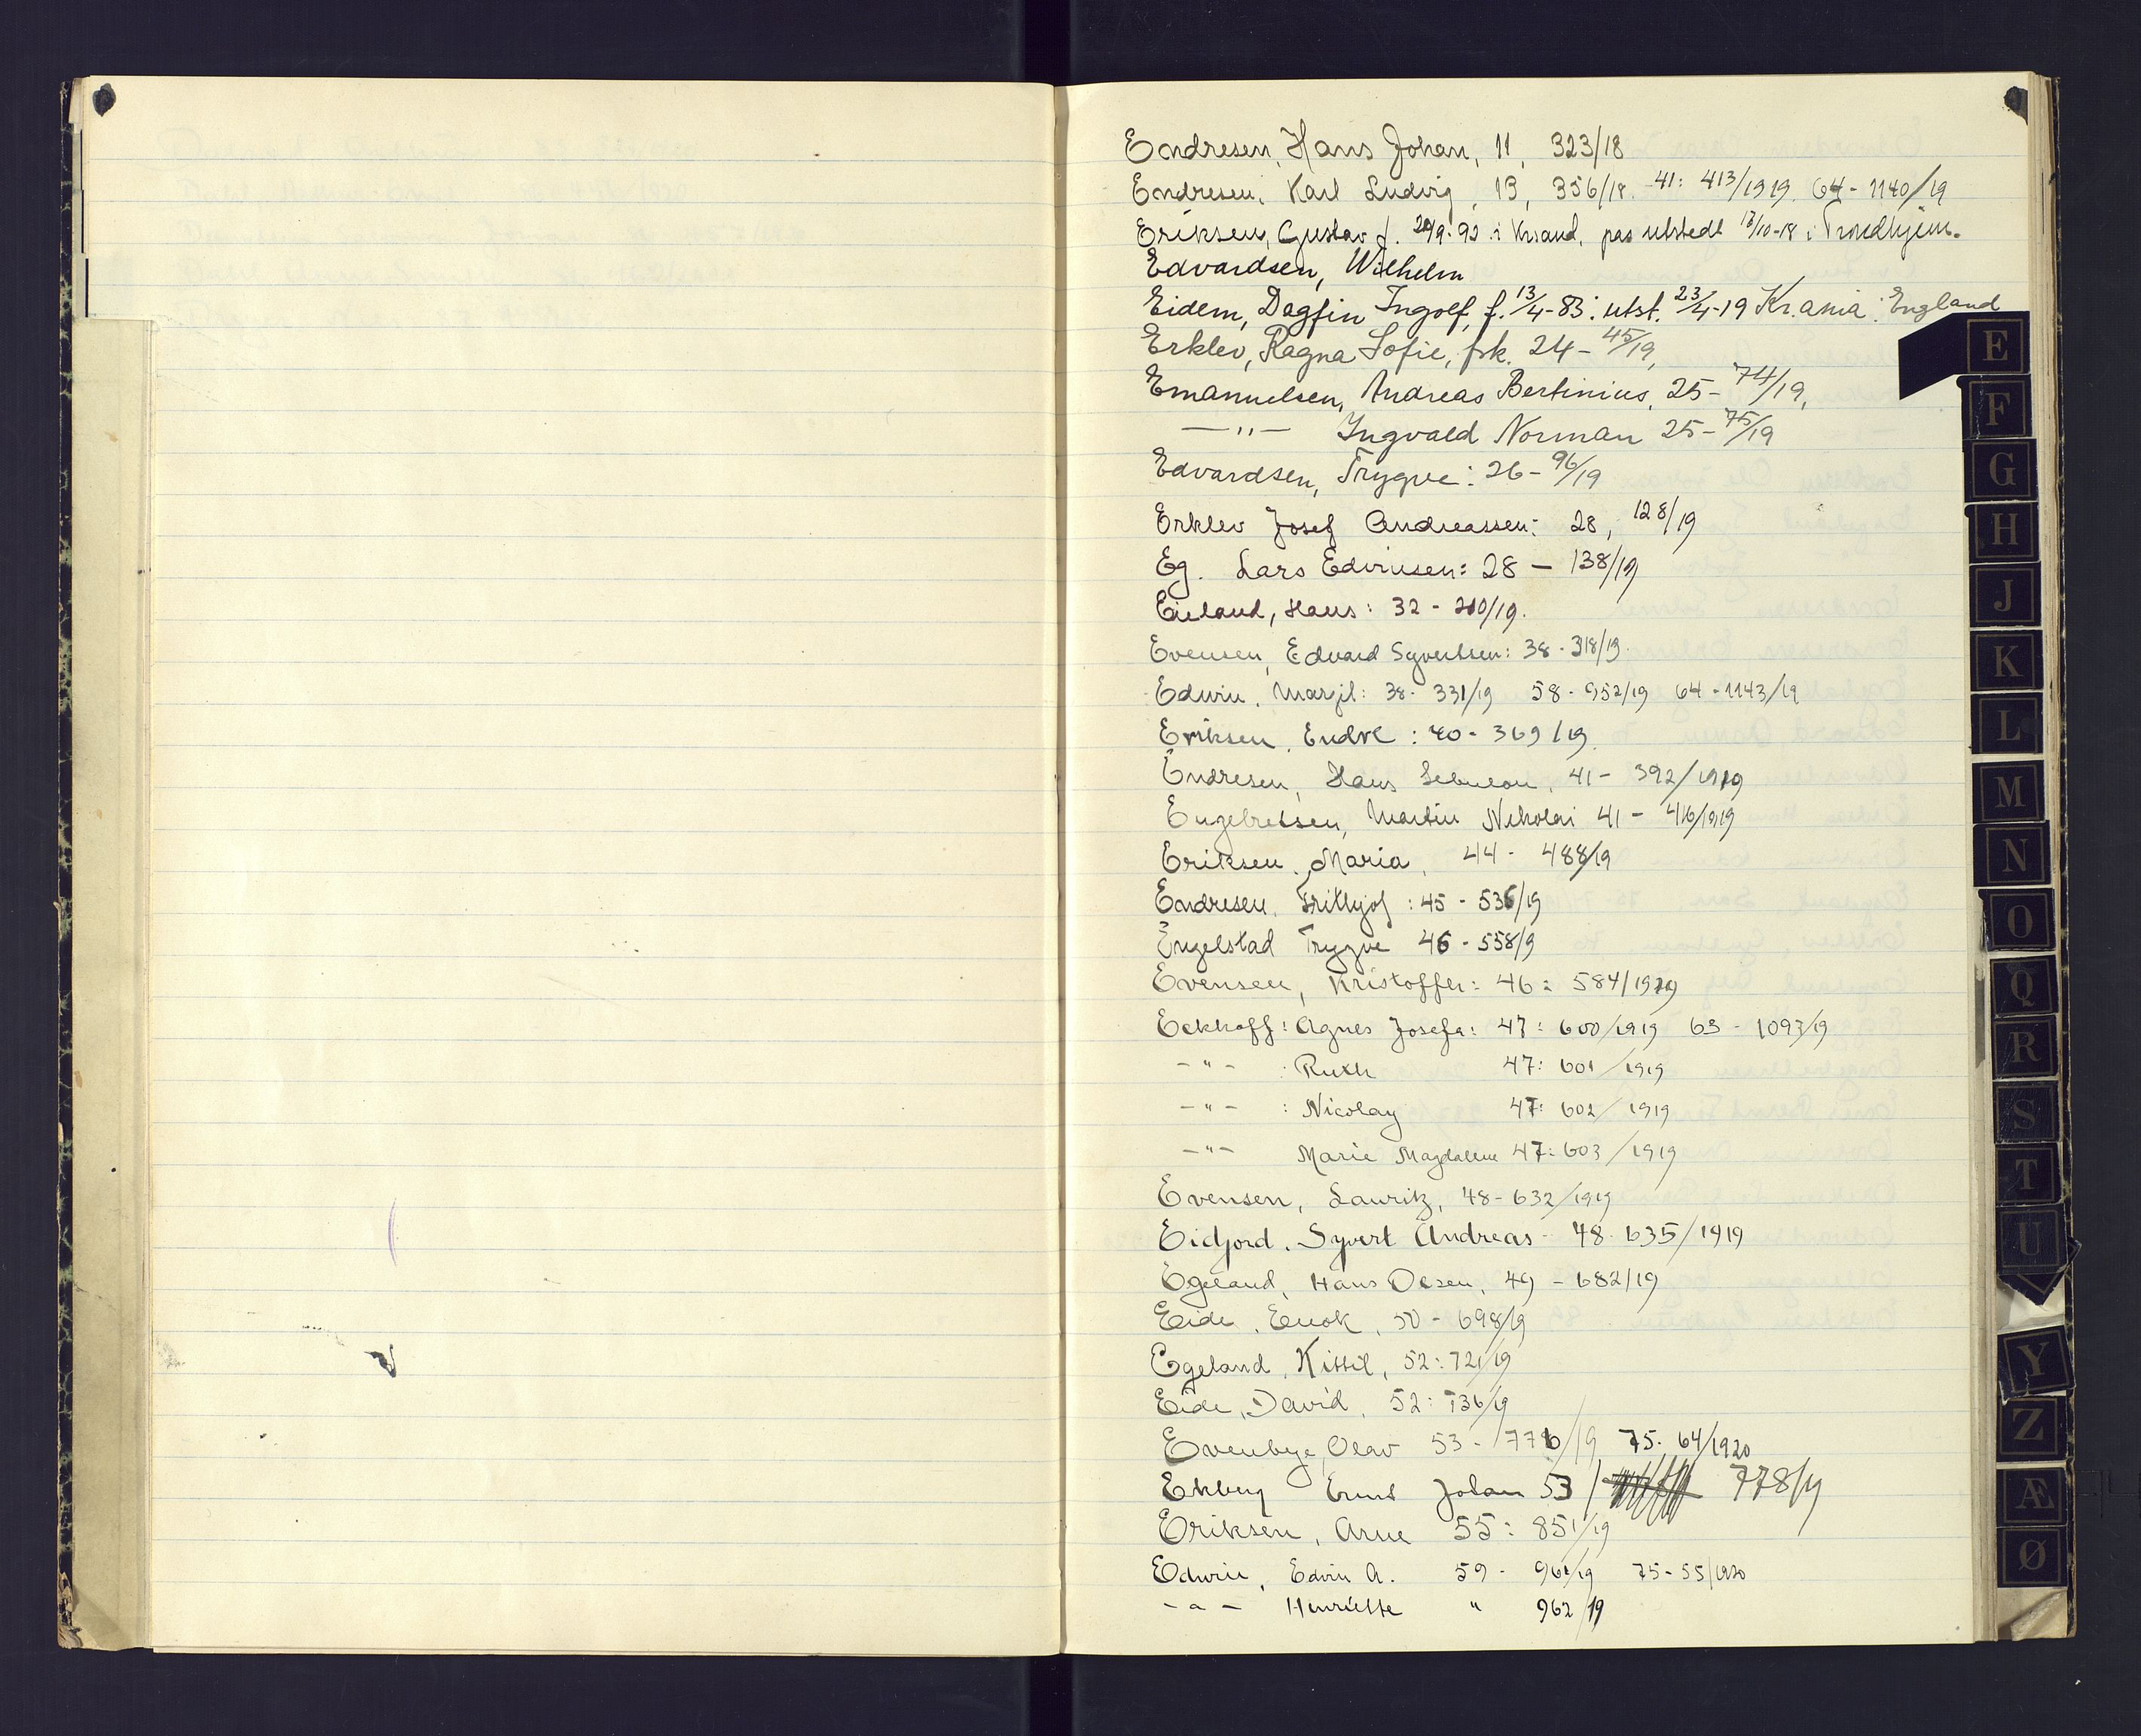 Endresen, Hans Johan, 11, 323/18
Endresen, Karl Ludvig, 13, 356/18. 41: 413/1919. 64 - 1140/19
Eriksen, Gustav f. 29/9-92 i Krsand, pas utstedt 17/10-18 i Trondhjem.
Edvardsen, Wilhelm
Eidem, Dagfin Ingolf, f. 13/4-83: utst. 23/4-19 Kr.ania: England
Erklev, Ragna Sofie, frk. 24 - 45/19,
Emanuelsen, Andreas Bertinius, 25 - 74/19,
—"— Ingvald Norman 25 - 75/19
Edvardsen, Trygve: 26 - 96/19
Erklev Josef Andreassen: 28, 128/19
Eg. Lars Edvinsen: 28 — 138/19
Eieland, Hans: 32 - 210/19.
Evensen, Edvard Syvertsen: 38 - 318/19.
Edwin, Marjil: 38 - 331/19 58 - 952/19 64 - 1143/19
Eriksen, Endre: 40 - 369/19
Endresen, Hans Sebulon, 41 - 392/1919
Engebretsen, Martin Nikolai 41 - 416/1919
Eriksen, Maria, 44 - 488/19
Endresen, Frithjof: 45 - 536/19
Engelstad Trygve 46 - 558/9
Evensen, Kristoffer: 46: 584/1919
Eckhoff: Agnes Josefa: 47: 600/1919 63 - 1093/19
-"- : Ruth 47: 601/1919
-"- : Nicolay 47: 602/1919
-"- Marie Magdalene 47: 603/1919
Evensen, Lauritz, 48 - 632/1919
Eidjord, Syvert Andreas - 48 - 635/1919
Egeland, Hans Olsen, 49 - 682/19
Eide, Enok, 50 - 698/19
Egeland, Kittil, 52: 721/19
Eide, David, 52: 736/19
Evenbye, Olav 53 - 776/19 75 - 64/1920
Ekberg Ernst Johan 53 / 778/19
Eriksen, Arne 55: 851/19
Edwin, Edvin A. 59 - 961/19 75 - 55/1920
-"- Henriette " 962/19
E
F
G
H
J
K
L
M
N
O
Q
R
S
T
U
Y
Z
Æ
Ø